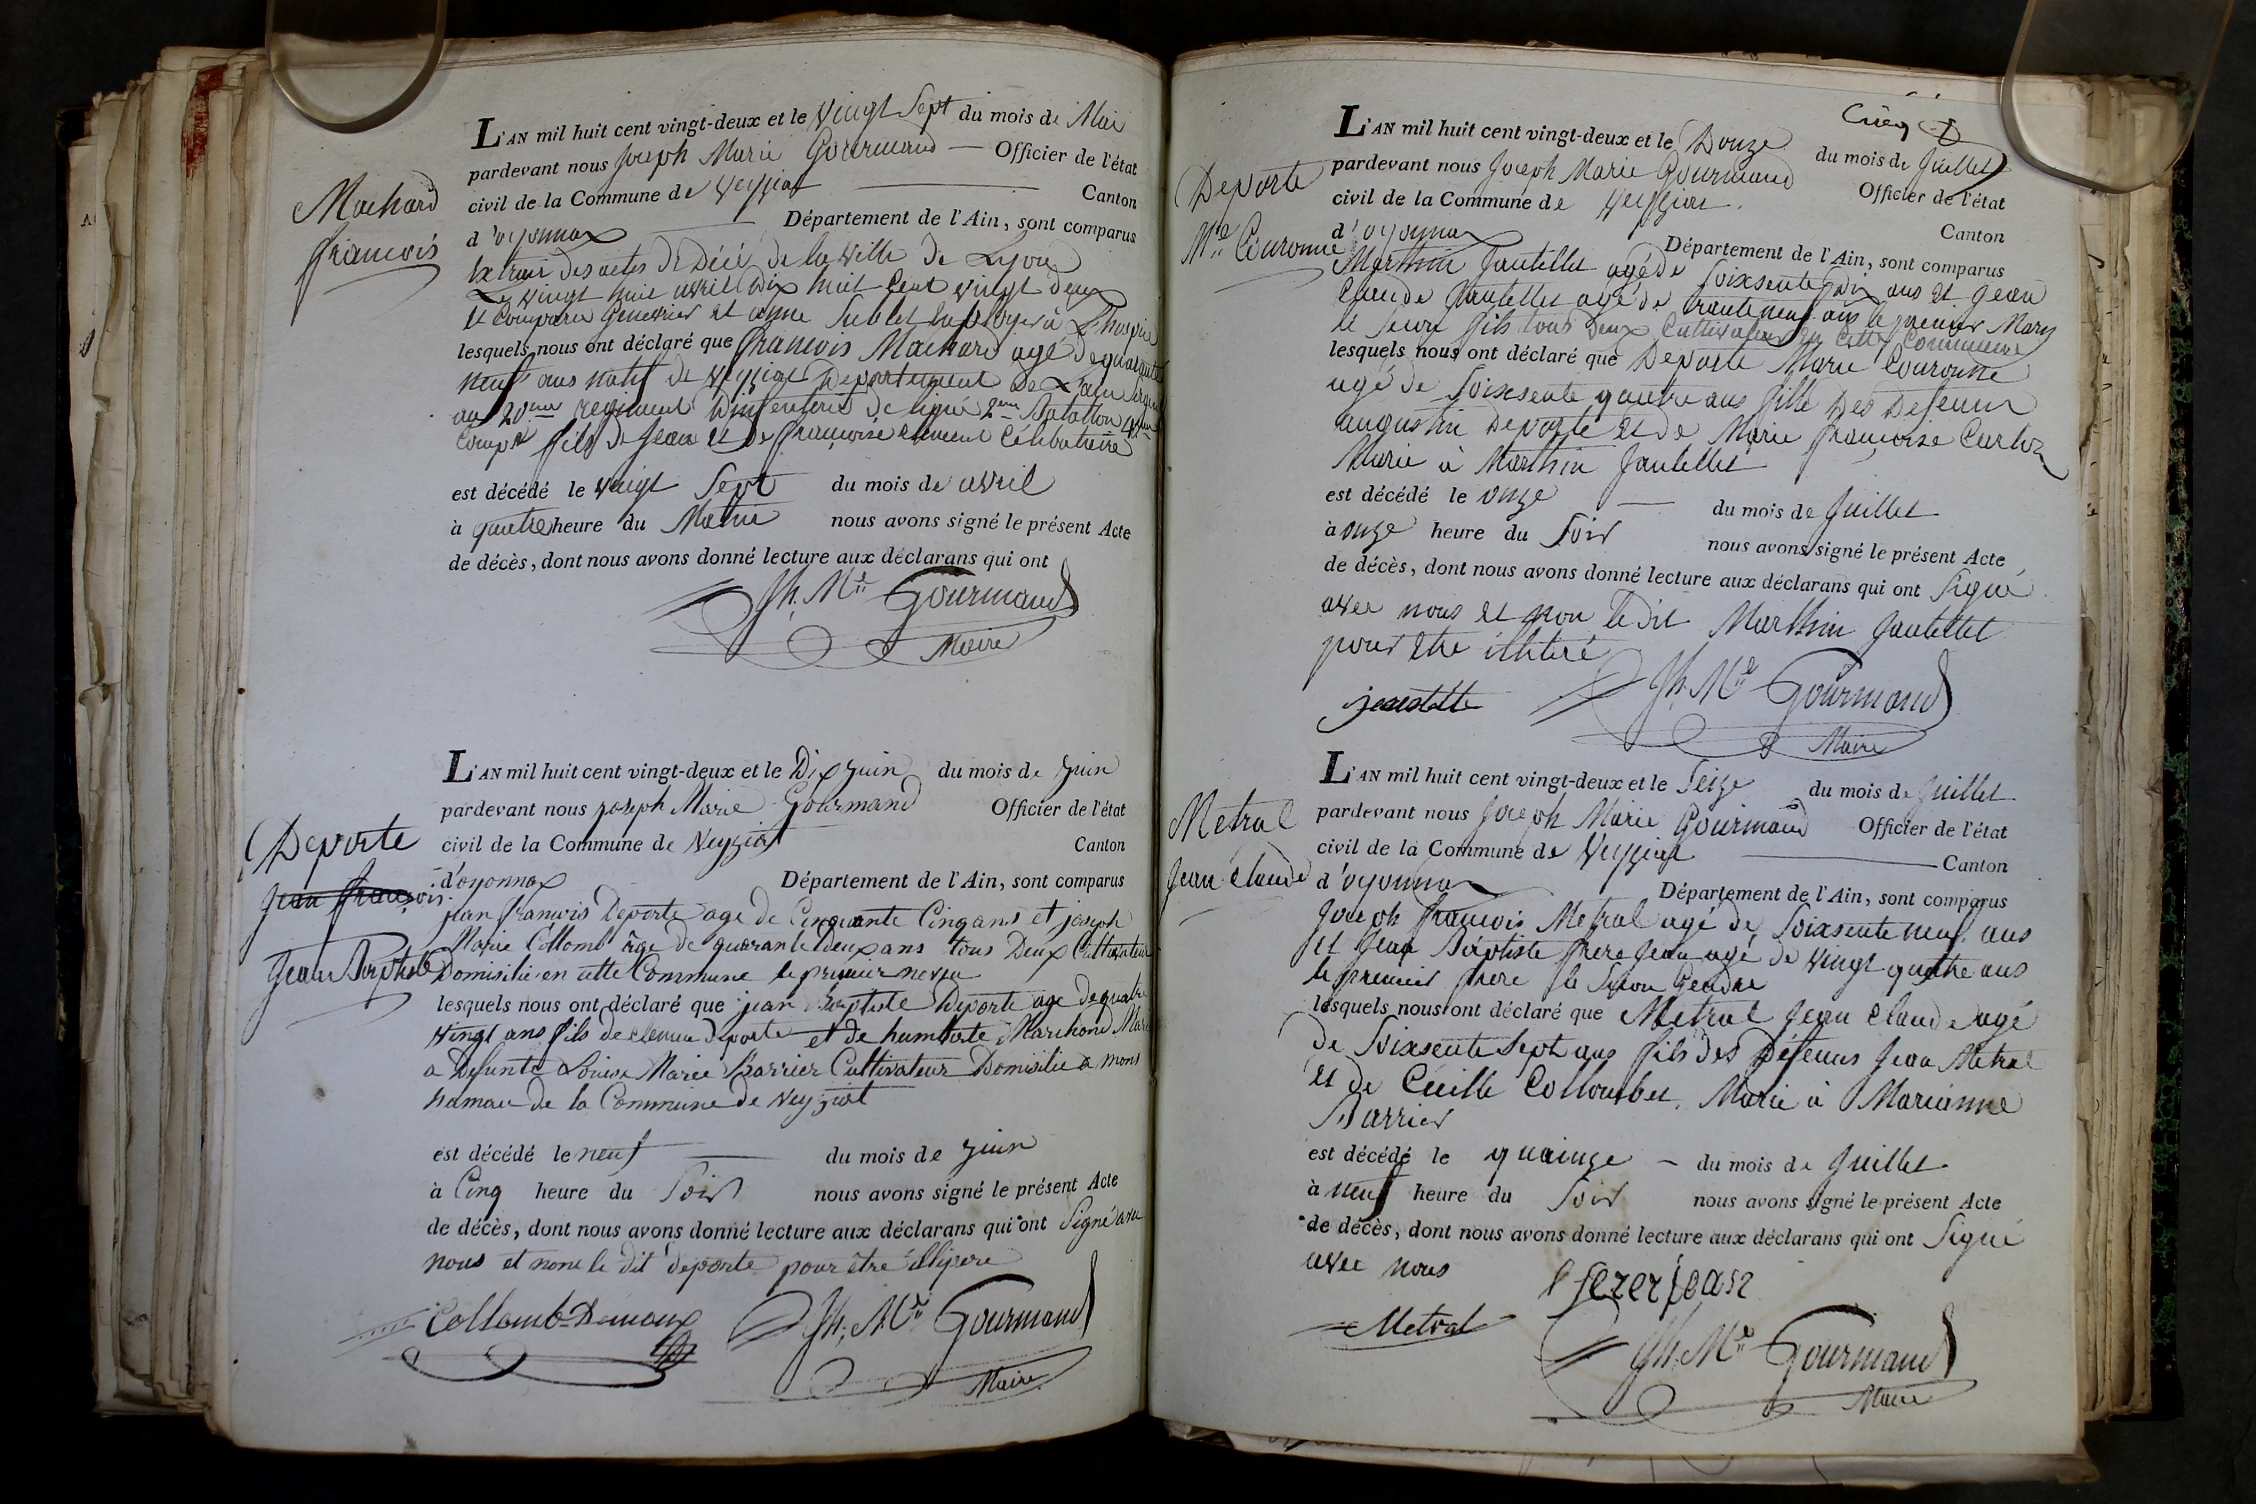 Machard
françois
L'AN mil huit cent vingt-deux et le Vingt Sept du mois de Mai
pardevant nous Joseph Marie Gourmand Officier de l'état
civil de la Commune de Veyziat Canton
d'oyonnax Département de l'Ain, sont comparus
Extrait des actes de Décé de la ville de Lyon
Le vingt huit avril Dix huit Cent vingt deux
et Comparu et Sublet Employer à L'hospice
lesquels nous ont déclaré que françois Machard agé de quarante
neuf ans natif de Veyziat Departement de L'ain
au 20eme regiment D'infenterie de ligne 2eme Batallion 4eme
Compe fils de Jean et de françoise Clement Célibataire
est décédé le vingt Sept du mois de avril
à quatre heure du Matin nous avons signé le présent Acte
de décès, dont nous avons donné lecture aux déclarans qui ont
Jh. Mie Gourmand
Maire
Deporte
Jean françois
Jean Baptiste
L'AN mil huit cent vingt-deux et le Dix juin du mois de juin
pardevant nous joseph Marie Gourmand Officier de l'état
civil de la Commune de Veyziat Canton
d'oyonnax Département de l'Ain, sont comparus
jean françois Deporte age de Cinquante Cinq ans et joseph
Marie Collomb âge de quarante deux ans tous Deux Cultivateur
Domisilie en cette Commune le premier neveu
lesquels nous ont déclaré que jean Baptiste Deporte age de quatre
vingt ans fils de clemen deporte et de humberte Marchand Marie
a Defunte Louise Marie Barrier Cultivateur Domisilie a mons
hamau de la Commune de Veyziat
est décédé le neuf du mois de juin
à Cinq heure du Soir nous avons signé le présent Acte
de décès, dont nous avons donné lecture aux déclarans qui ont Signé avec
nous et none le dit deporte pour être
Collomb
Jh. Mie Gourmand
Maire
Deporte
Mie Couronne
L'AN mil huit cent vingt-deux et le Douze du mois de Juillet
pardevant nous Joseph Marie Gourmand Officier de l'état
civil de la Commune de Veyziat Canton
d'oyonnax Département de l'Ain, sont comparus
Marthin Jantellet agé de Soixsente Dix ans et Jean
Claude Jantellet agé de trante neuf ans le premier Mary
le Secon fils tous Deux Cultivateur en Cette Commune
lesquels nous ont déclaré que Deporte Marie Couronne
agé de Soixsente quatre ans fille Des Defeun
augustin Deporte et de Marie françoise Carlod
Marie à Marthin Jantellet
est décédé le onze du mois de Juillet
à onze heure du Soir nous avons signé le présent Acte
de décès, dont nous avons donné lecture aux déclarans qui ont Signé
avec nous et non le Dit Marthin Jantellet
pour Etre illiteré
Jh. Mie Gourmand
Maire
Metral
Jean Claude
L'AN mil huit cent vingt-deux et le Seize du mois de Juillet
pardevant nous Joseph Marie Gourmand Officier de l'état
civil de la Commune de Veyziat Canton
d'oyonnax Département de l'Ain, sont comparus
Joseph françois Metral agé de Soixsente neuf ans
et Jean Baptiste frere Jean agé de vingt quatre ans
le premier frere le Secon Gendre
lesquels nous ont déclaré que Metral Jean Claude agé
de Soixsente Sept ans fils des Défeuns Jean Metral
et de Cicille Colloumbet Marie à Marianne
Barrier
est décédé le quainze du mois de Juillet
à neuf heure du Soir nous avons signé le présent Acte
de décès, dont nous avons donné lecture aux déclarans qui ont Signé
avec nous
Metral
Jh. Mie Gourmand
Maire